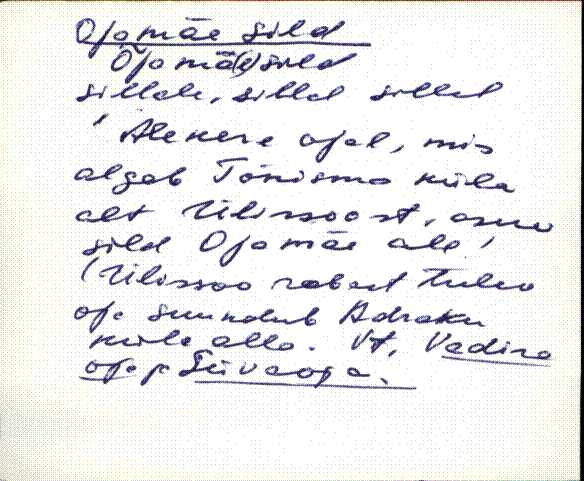 Ojamäe sild
Ojamä(e)sild
sillale, sillal sillal
'Alekere ojal, mis
algab Tõnismo küla
alt Ülissoost, asub
sild Ojamäe all'
(Ülissoo rabast tulev
oja suundub Adraku
küla alla. Vt. Vedira
oja ja Süvaoja.